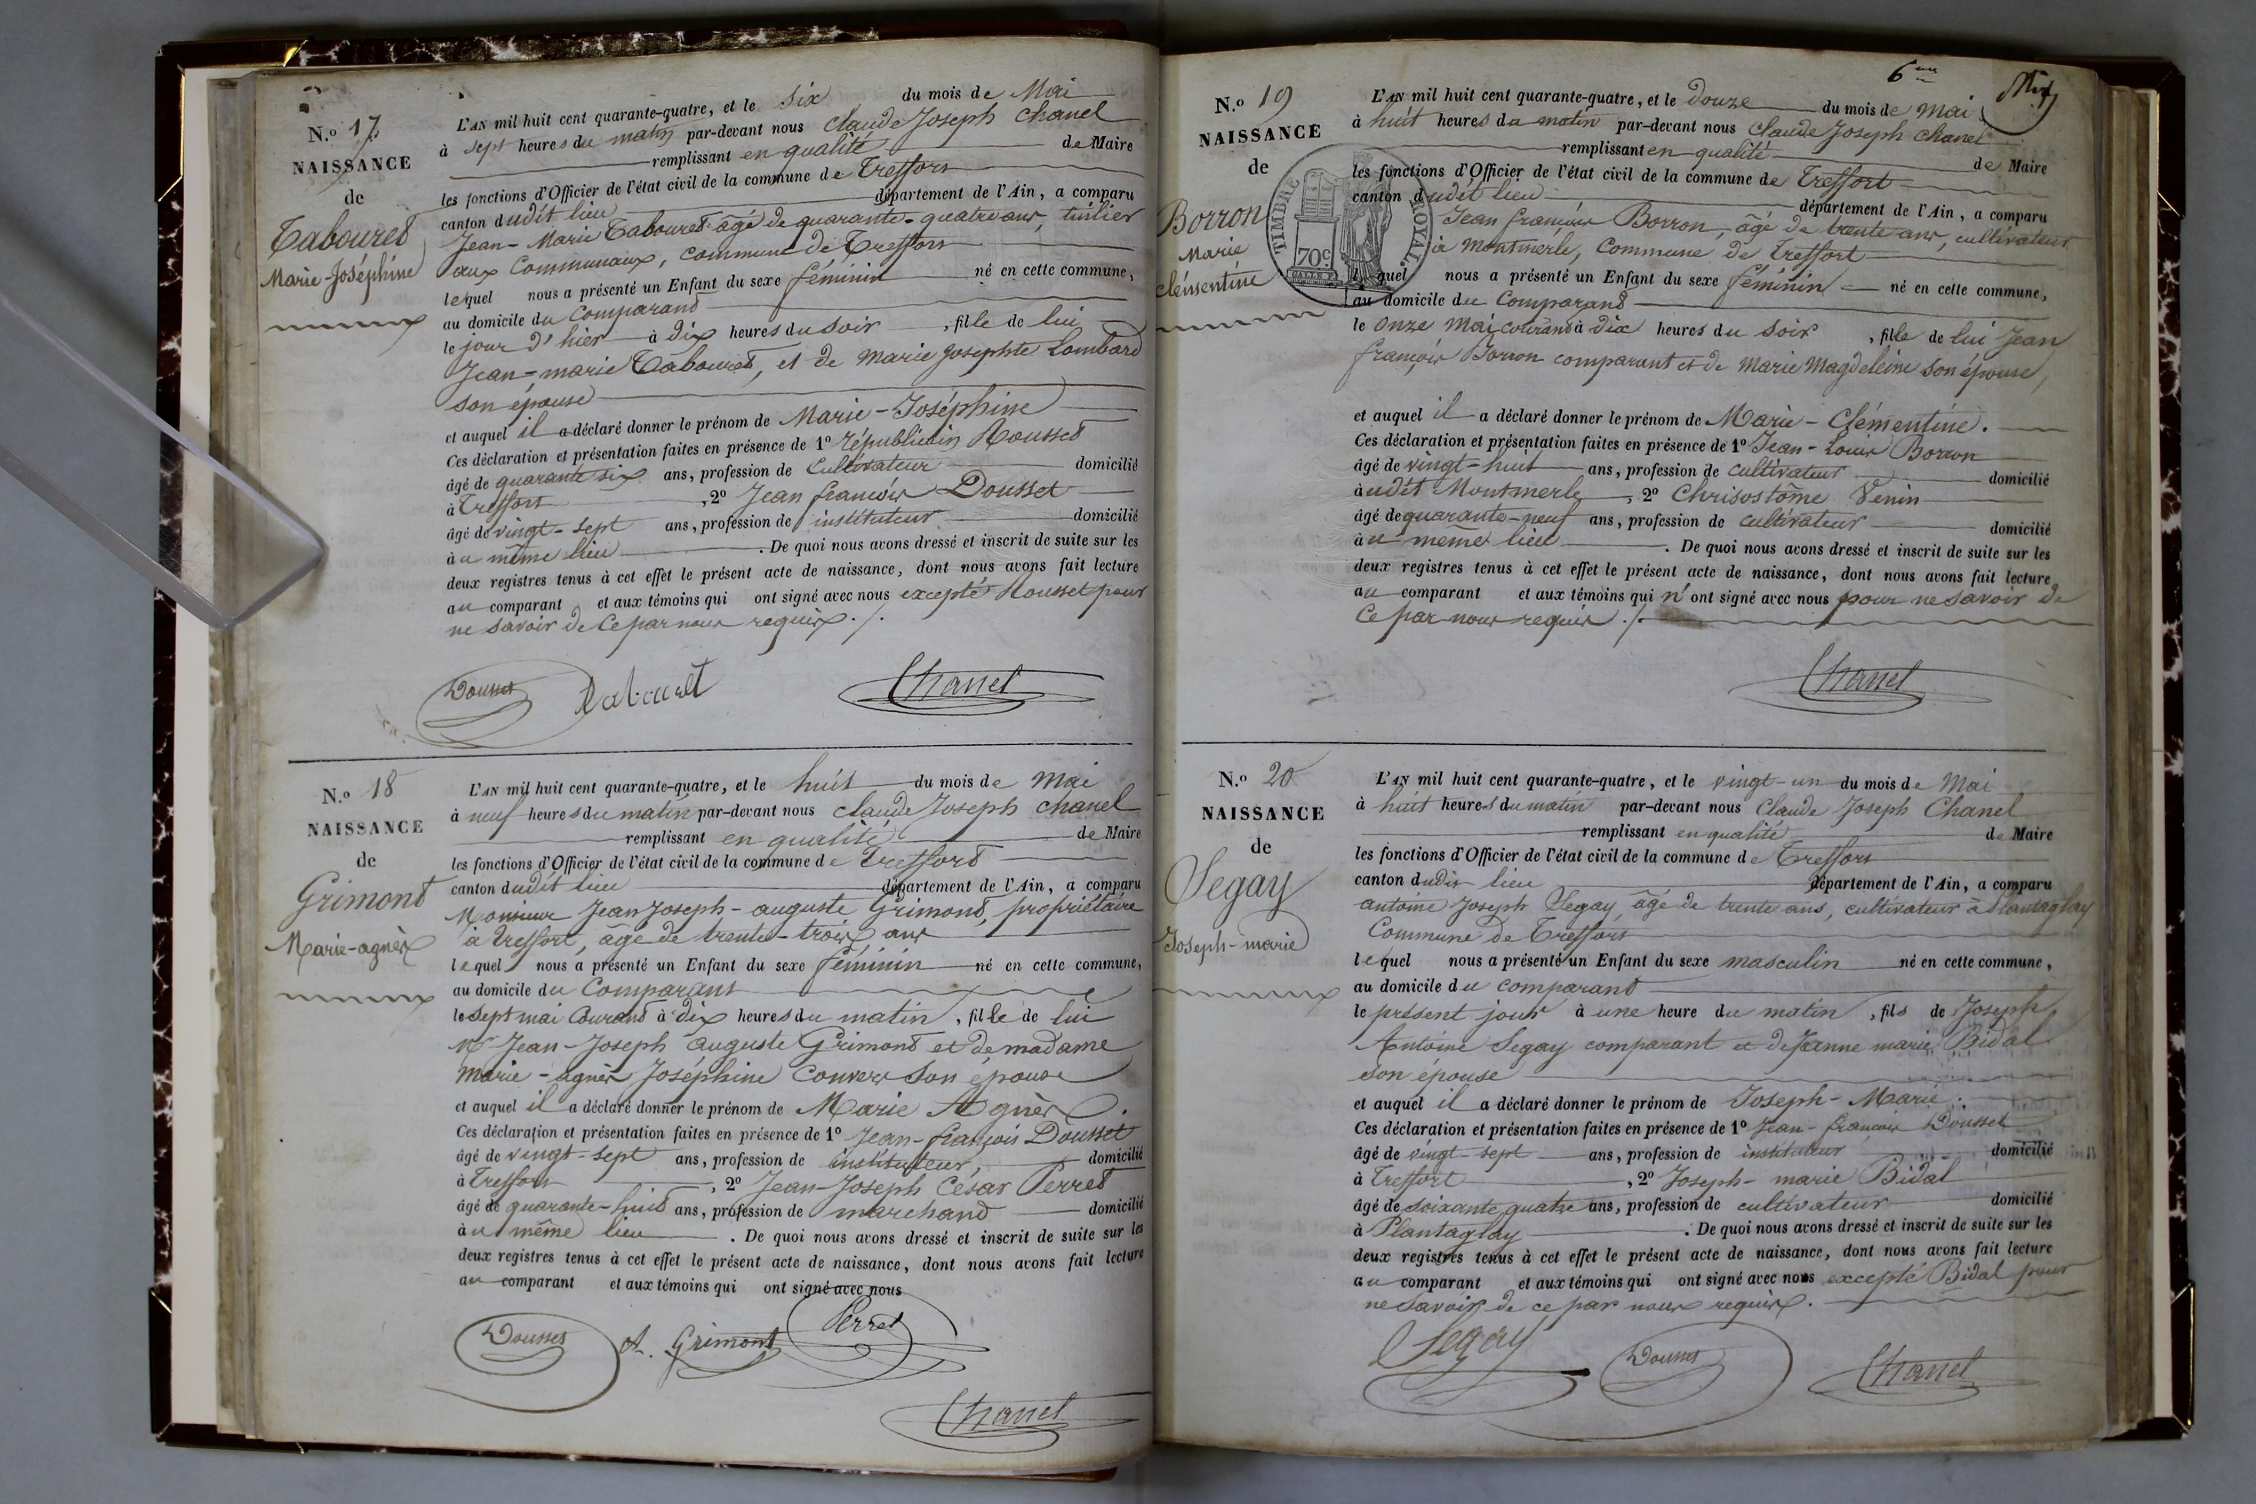 N.º 17
NAISSANCE
de
Tabouret
Marie-Joséphine
L'AN mil huit cent quarante-quatre, et le six du mois de Mai
à sept heures du matin par-devant nous Claude Joseph Chanel
remplissant en qualité de Maire
les fonctions d'Officier de l'état civil de la commune de Treffort
canton dudit lieu département de l'Ain, a comparu
Jean-Marie Tabouret âgé de quarante-quatre ans, tuilier
aux Communaux, commune de Treffort
lequel nous a présenté un Enfant du sexe féminin né en cette commune,
au domicile du Comparant
le jour d'hier à dix heures du soir, fille de lui
Jean-marie Tabouret, et de Marie Josephte Lombard
son épouse
et auquel il a déclaré donner le prénom de Marie-Joséphine
Ces déclaration et présentation faites en présence de 1º républicain Rousset
âgé de quarante six ans, profession de Cultivateur domicilié
à Treffort, 2º Jean françois Dousset
âgé de vingt-sept ans, profession de instituteur domicilié
au même lieu. De quoi nous avons dressé et inscrit de suite sur les
deux registres tenus à cet effet le présent acte de naissance, dont nous avons fait lecture
au comparant et aux témoins qui ont signé avec nous excepté Rousset pour
ne savoir de ce par nous requis ./.
Dousset Tabouret Chanel
N.º 18
NAISSANCE
de
Grimont
Marie-agnès
L'AN mil huit cent quarante-quatre, et le huit du mois de Mai
à neuf heures du matin par-devant nous Claude Joseph Chanel
remplissant en qualité de Maire
les fonctions d'Officier de l'état civil de la commune de Treffort
canton dudit lieu département de l'Ain, a comparu
Monsieur Jean Joseph-auguste Grimont, propriétaire
à Treffort, âgé de trente-trois ans
lequel nous a présenté un Enfant du sexe féminin né en cette commune,
au domicile du Comparant
le sept mai Courant à dix heures du matin, fille de lui
Mr Jean-Joseph auguste Grimont et de madame
Marie-agnès Joséphine Convers son épouse
et auquel il a déclaré donner le prénom de Marie Agnès.
Ces déclaration et présentation faites en présence de 1º Jean-françois Dousset
âgé de vingt-sept ans, profession de instituteur, domicilié
à Treffort, 2º Jean-Joseph Cesar Perret
âgé de quarante-huit ans, profession de marchand domicilié
au même lieu. De quoi nous avons dressé et inscrit de suite sur les
deux registres tenus à cet effet le présent acte de naissance, dont nous avons fait lecture
au comparant et aux témoins qui ont signé avec nous
Dousset A. Grimont Perret
Chanel
6me
N.º 19
NAISSANCE
de
Borron
Marie
Clémentine
TIMBRE ROYAL
70c.
L'AN mil huit cent quarante-quatre, et le douze du mois de mai
à huit heures du matin par-devant nous Claude Joseph Chanel
remplissant en qualité de Maire
les fonctions d'Officier de l'état civil de la commune de Treffort
canton dudit lieu département de l'Ain, a comparu
Jean françois Borron, âgé de trente ans, cultivateur
à Montmerle, Commune de Treffort
lequel nous a présenté un Enfant du sexe féminin né en cette commune,
au domicile du Comparant
le onze Mai courant à dix heures du soir, fille de lui Jean
françois Borron comparant et de Marie Magdeleine son épouse,
et auquel il a déclaré donner le prénom de Marie-Clémentine.
Ces déclaration et présentation faites en présence de 1º Jean-Louis Borron
âgé de vingt-huit ans, profession de cultivateur domicilié
audit Montmerle, 2º Chrisostôme Venin
âgé de quarante-neuf ans, profession de cultivateur domicilié
au meme lieu. De quoi nous avons dressé et inscrit de suite sur les
deux registres tenus à cet effet le présent acte de naissance, dont nous avons fait lecture
au comparant et aux témoins qui n'ont signé avec nous pour ne savoir de
ce par nous requis ./.
Chanel
N.º 20
NAISSANCE
de
Segay
Joseph-marie
L'AN mil huit cent quarante-quatre, et le vingt-un du mois de Mai
à huit heures du matin par-devant nous Claude Joseph Chanel
remplissant en qualité de Maire
les fonctions d'Officier de l'état civil de la commune de Treffort
canton dudit lieu département de l'Ain, a comparu
antoine Joseph Segay âgé de trente ans, cultivateur à Plantaglay
Commune de Treffort
lequel nous a présenté un Enfant du sexe masculin né en cette commune,
au domicile du comparant
le présent jour à une heure du matin, fils de Joseph
Antoine Segay comparant et de Jeanne marie Bidal
son épouse
et auquel il a déclaré donner le prénom de Joseph-Marie.
Ces déclaration et présentation faites en présence de 1º Jean-françois Dousset
âgé de vingt-sept ans, profession de instituteur domicilié
à Treffort, 2º Joseph-marie Bidal
âgé de soixante quatre ans, profession de cultivateur domicilié
à Plantaglay. De quoi nous avons dressé et inscrit de suite sur les
deux registres tenus à cet effet le présent acte de naissance, dont nous avons fait lecture
au comparant et aux témoins qui ont signé avec nous excepté Bidal pour
ne savoir de ce par nous requis.
Segay Dousset Chanel